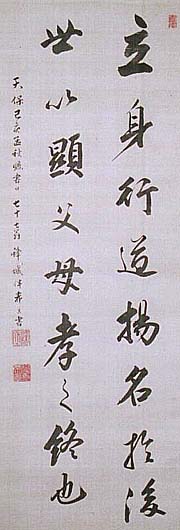 立身行道揚名於後
世以顯父母孝之終也
天保己亥孟秋
七十
書